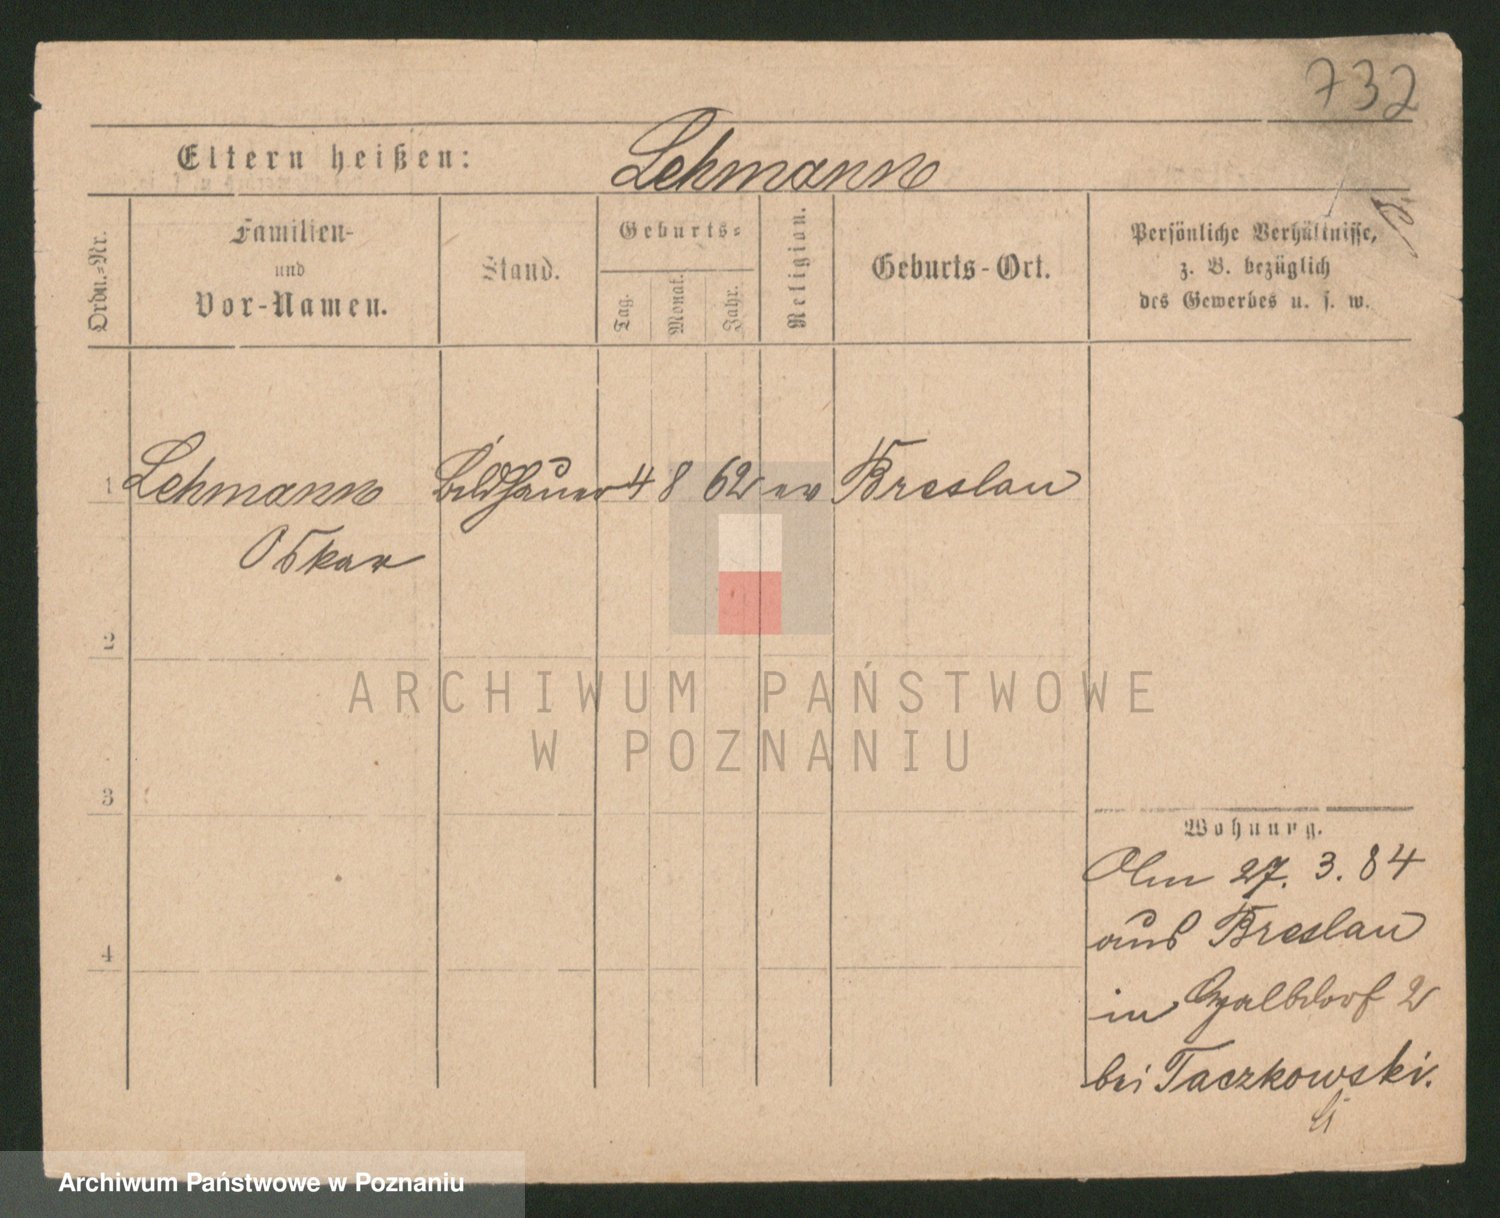 732
Eltern heißen: Lehmann
Ordn.=Nr.
Familien-
und
Vor-Namen.
Stand.
Geburts=
Tag.
Monat.
Jahr.
Religion.
Geburts-Ort.
Persönliche Verhältnisse,
z. B. bezüglich
des Gewerbes u. s. w.
1 Lehmann Bildhauer 4 8 62 ev Breslau
Oskar
2
3
4
Wohnung.
27. 3. 84
aus Breslau
in 2
bei Taczkowski.
ARCHIWUM PAŃSTWOWE
W POZNANIU
Archiwum Państwowe w Poznaniu